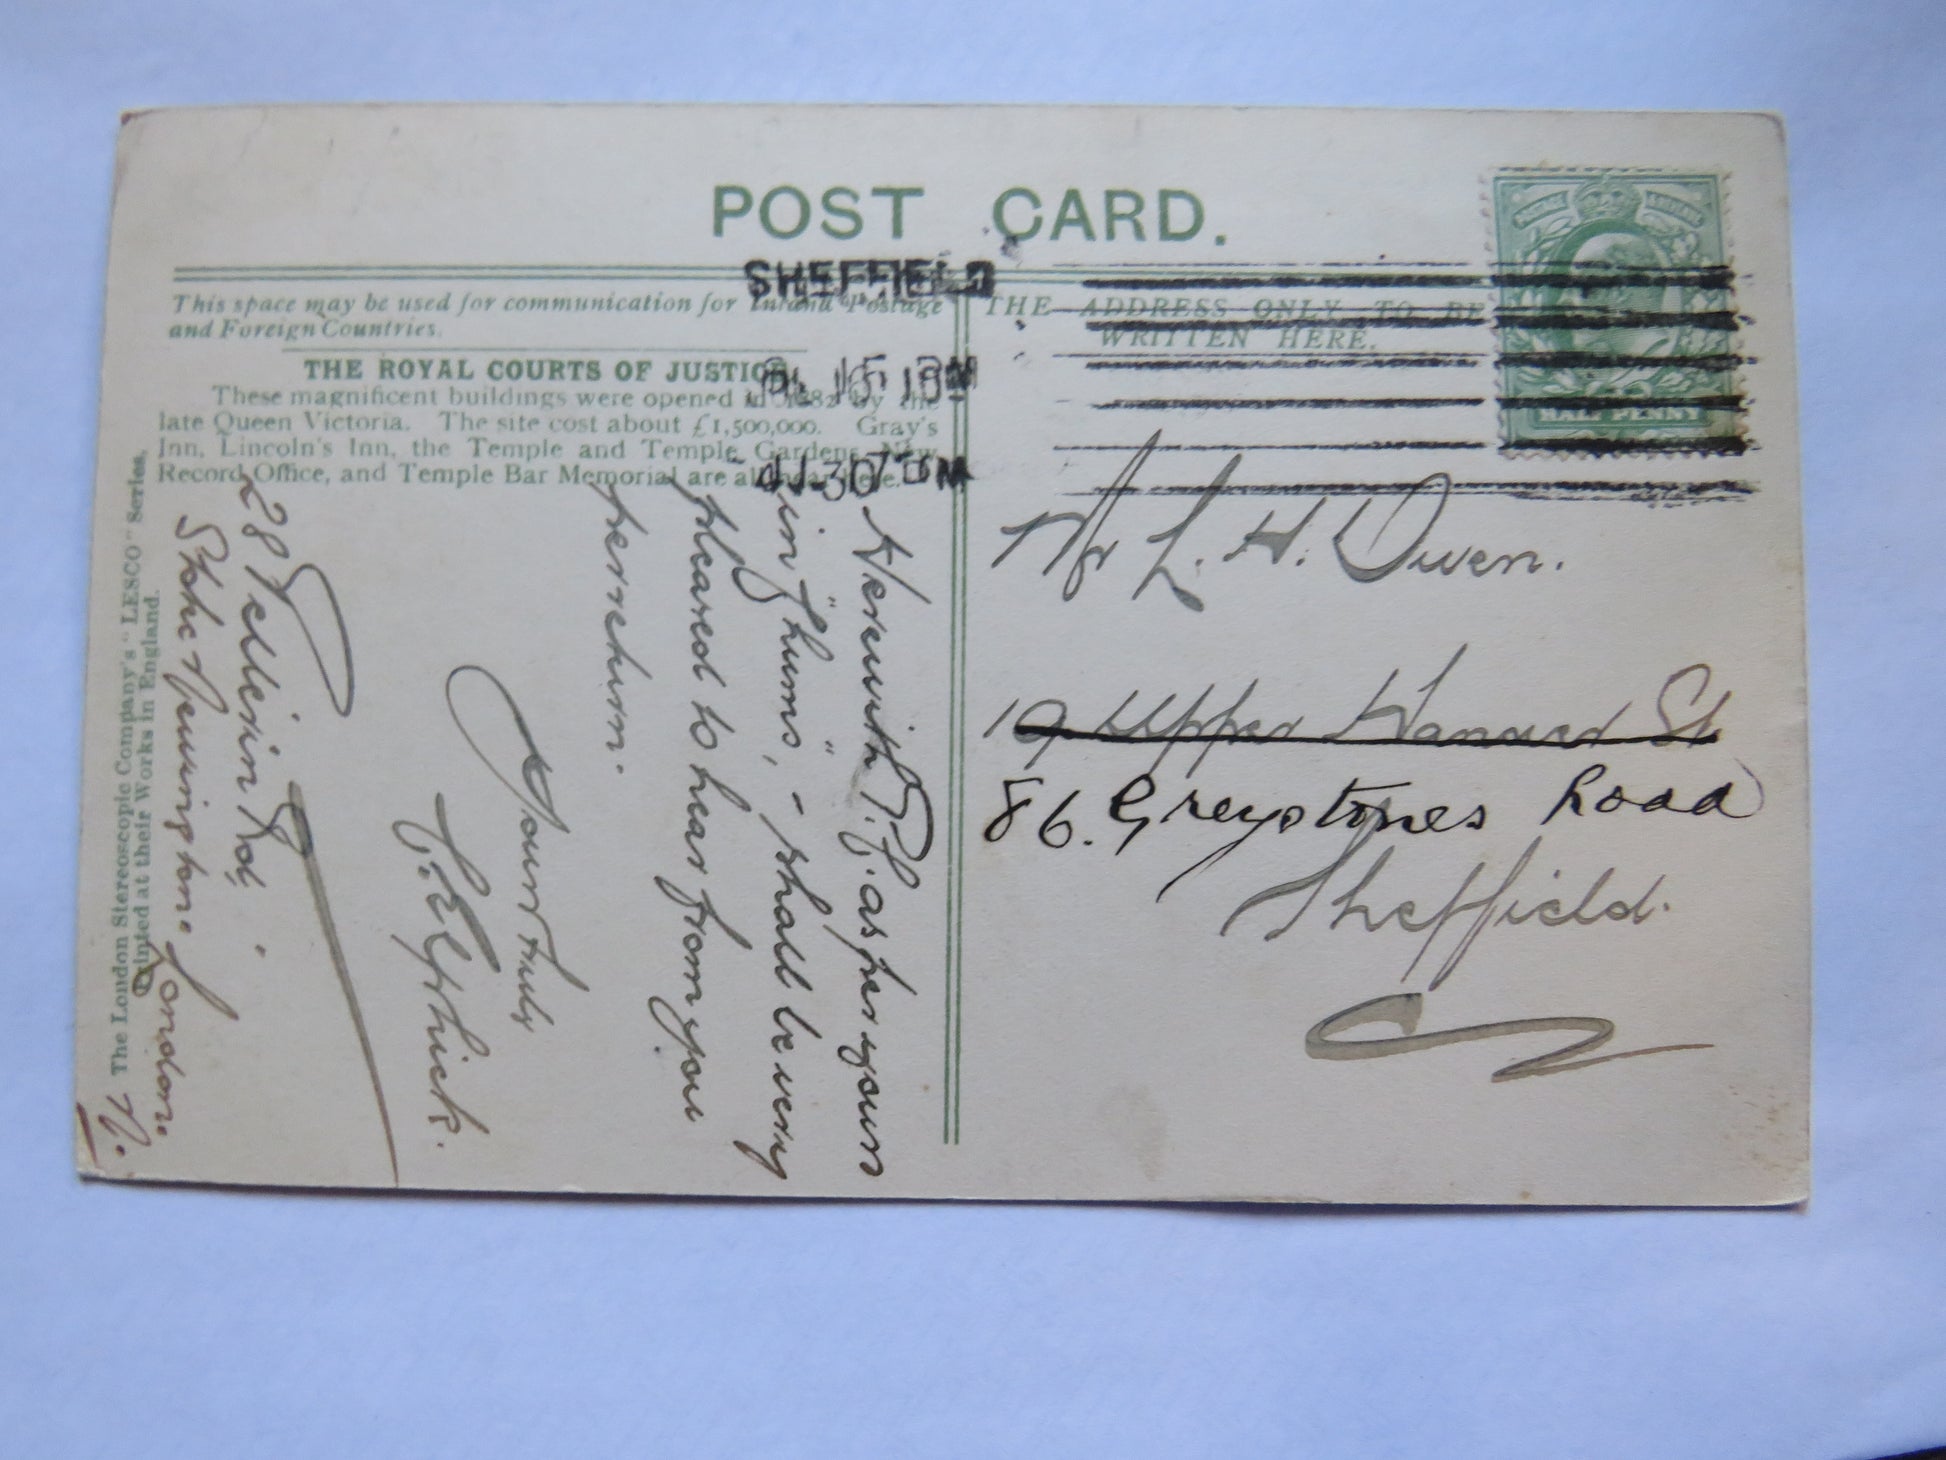 POST CARD.
SHEFFIELD
This space may be used for communication for Inland Postage
and Foreign Countries.
THE ADDRESS ONLY TO BE
WRITTEN HERE.
THE ROYAL COURTS OF JUSTICE.
These magnificent buildings were opened in 1882 by the
late Queen Victoria. The site cost about £1,500,000. Gray's
Inn, Lincoln's Inn, the Temple and Temple Gardens, New
Record Office, and Temple Bar Memorial are all near here.
HALF PENNY
Herewith P.P.C. as per your
in "Thums", - shall be very
pleased to hear from you
per return.
Yours truly
28 Pellerin Rd,
Stoke Newington. London.
N.
The London Stereoscopic Company's "LESCO" Series.
Printed at their Works in England.
Mr L. H. Owen.
19 Upper Hanover St
86. Greystones Road
Sheffield.